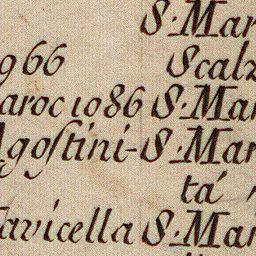 S. Mar
966 Scalz
aroc 1086 S. Mar
Agoſtini- S. Mar
tá
avicella S. Mar